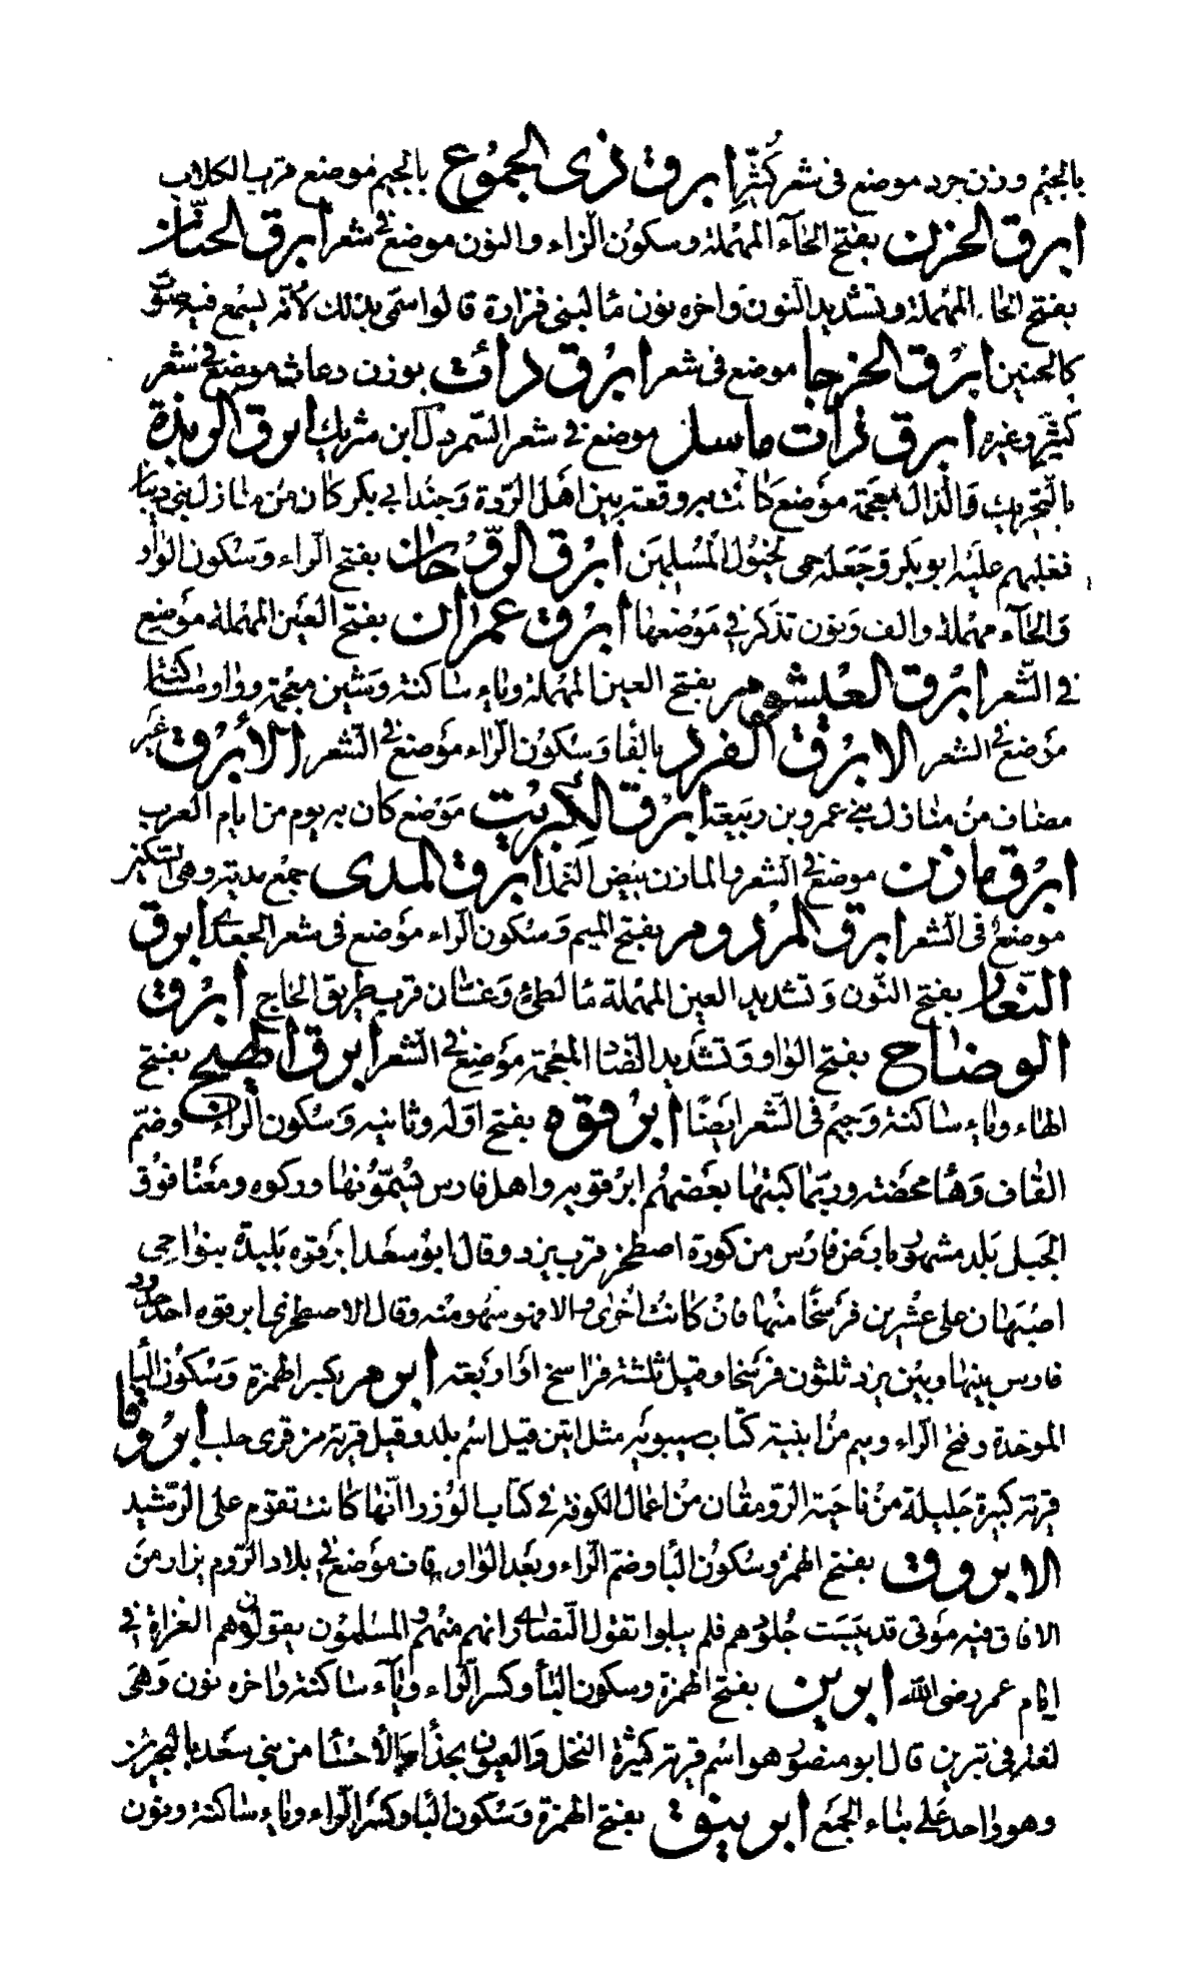 بالجيم وزن جرد موضع في شعر كُثيّر ابرق ذى الجموع بالجيم موضع قرب الكلاب
ابرق الحزن بفتح الحآء المهملة وسكون الزاء والنون موضع في شعر ابرق الحنّان
بفتح الحاء المهملة وتشديد النون واخره نون مآ لبنى فزارة قالوا سمى بذلك لأنّه يسمع فيه صوت
كالحنين ابرق الخرجا موضع في شعر ابرق دائث بوزن دعاث موضع في شعر
كثيّر وغيره ابرق ذات ماسل موضع في شعر الشمردل ابن شريك ابرق الربذة
بالتحريك والذال معجمة موضع كانت به وقعة بين اهل الردة وجند ابي بكر كان من منازل بني ذبيان
فغلبهم عليه ابو بكر وجعله حمى لخيول المسلمين ابرق الرَّوحان بفتح الراء وسكون الواو
والحآء مهملة والف ونون تذكر في موضعها ابرق عمران بفتح العين المهملة موضع
في الشعر ابرق العيشوم بفتح العين المهملة وياء ساكنة وشين معجمة وواو ساكنة
موضع في الشعر الابرق الفرد بالفا وسكون الراء موضع في الشعر الأبرق غير
مضاف من منازل بني عمرو بن ربيعة ابرق الكبريت موضع كان به يوم من ايام العرب
ابرق مازن موضع في الشعر والمازن بيض النمل ابرق المدى جمع مدية وهى السكين
موضع في الشعر ابرق المردوم بفتح الميم وسكون الراء موضع فى شعر الجعدي ابرق
النّعار بفتح النون وتشديد العين المهملة مآ لطئ وغسان قرب طريق الحاج ابرق
الوضاح بفتح الواو وتشديد الضاد المعجمة موضع في الشعر ابرق الهيج بفتح
الهاء وياء ساكنة وجيم في الشعر ايضًا ابرقوه بفتح اوله وثانيه وسكون الراء وضم
القاف وهآ محضة وربما كتبها بعضهم ابرقويه واهل فارس يسمونها وركوه ومعنا فوق
الجبل بلد مشهور بارض فارس من كورة اصطخر قرب يزد وقال ابو سعد ابرقوه بليدة بنواحي
اصبهان على عشرين فرسخًا منها فان كانت اخرى والا فهو سهو منه وقال الاصطخرى ابرقوه اخر حدود
فارس بينها وبين يزد ثلثون فرسخا وقيل ثلثة فراسخ او اربعة ابرم بكسر الهمزة وسكون البا
الموحدة وفتح الراء وميم من ابنية كتاب سيبويه مثل ابين قيل اسم بلد وقيل قرية من قرى حلب ابروقا
قرية كبيرة جليلة من ناحية الرومقان من اعمال الكوفة في كتاب الوزرا انها كانت تقوم على الرشيد
الابروق بفتح الهمزة وسكون البا وضم الراء وبعد الواو قاف موضع في بلاد الروم يزار من
الافاق فيه موتى قد يبست جلودهم فلم يبلوا تقول النصارى انهم منهم والمسلمون يقولون هم الغزاة في
ايام عمر رضى الله ابرين بفتح الهمزة وسكون البا وكسر الراء وياء ساكنة واخره نون وهى
لغة في يبرين قال ابو منصور هو اسم قرية كثيرة النخل والعيون بحذاء الأحسا من بني سعد بالبحرين
وهو واحد على بناء الجمع ابرينق بفتح الهمزة وسكون البا وكسر الراء وياء ساكنة ونون